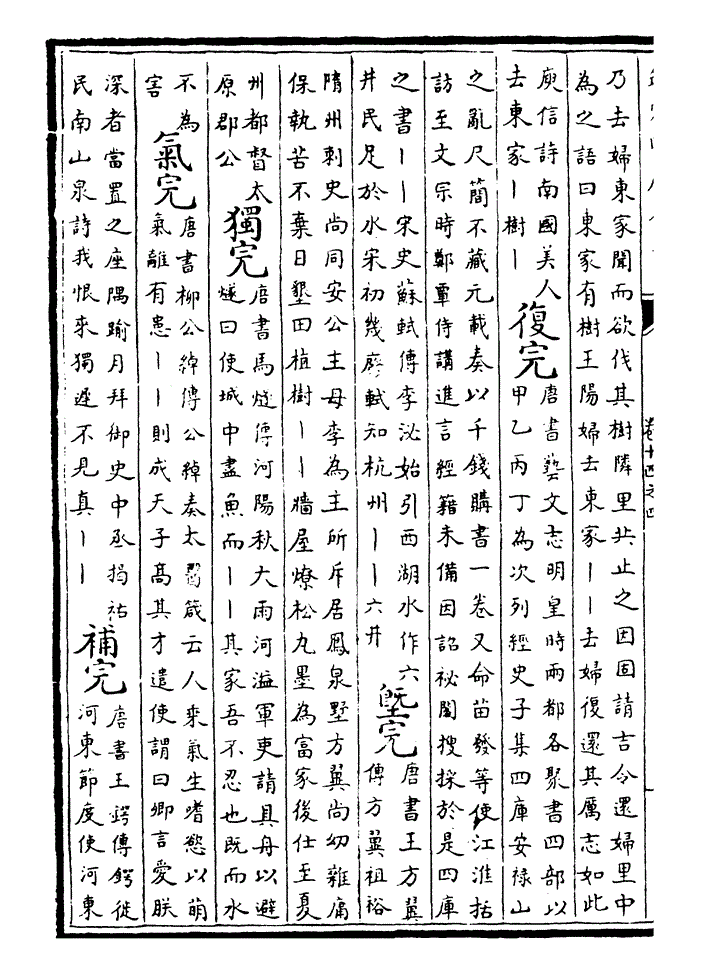 乃去婦東家聞而欲伐其樹隣里共止之因固請吉令還婦里中
為之語曰東家有樹王陽婦去東家丨丨去婦復還其厲志如此
庾信詩南國美人
去東家丨樹丨
復完
唐書藝文志明皇時兩都各聚書四部以
甲乙丙丁為次列經史子集四庫安祿山
之亂尺簡不藏元載奏以千錢購書一卷又命苗發等使江淮括
訪至文宗時鄭覃侍講進言經籍未備因詔祕閣搜採於是四庫
之書丨丨宋史蘇軾傳李泌始引西湖水作六
井民足於水宋初幾廢軾知杭州丨丨六井
塈完
唐書王方翼
傳方翼祖裕
隋州刺史尚同安公主母李為主所斥居鳳泉墅方翼尚幼雜庸
保執苦不棄日墾田植樹丨丨牆屋燎松丸墨為富家後仕至夏
州都督太
原郡公
獨完
唐書馬燧傳河陽秋大雨河溢軍吏請具舟以避
燧曰使城中盡魚而丨丨其家吾不忍也既而水
不為
害
氣完
唐書柳公綽傳公綽奏太醫箴云人乘氣生嗜慾以萌
氣離有患丨丨則成天子高其才遣使謂曰卿言愛朕
深者當置之座隅踰月拜御史中丞揭祐
民南山泉詩我恨來獨遲不見真丨丨
補完
唐書王鍔傳鍔徙
河東節度使河東